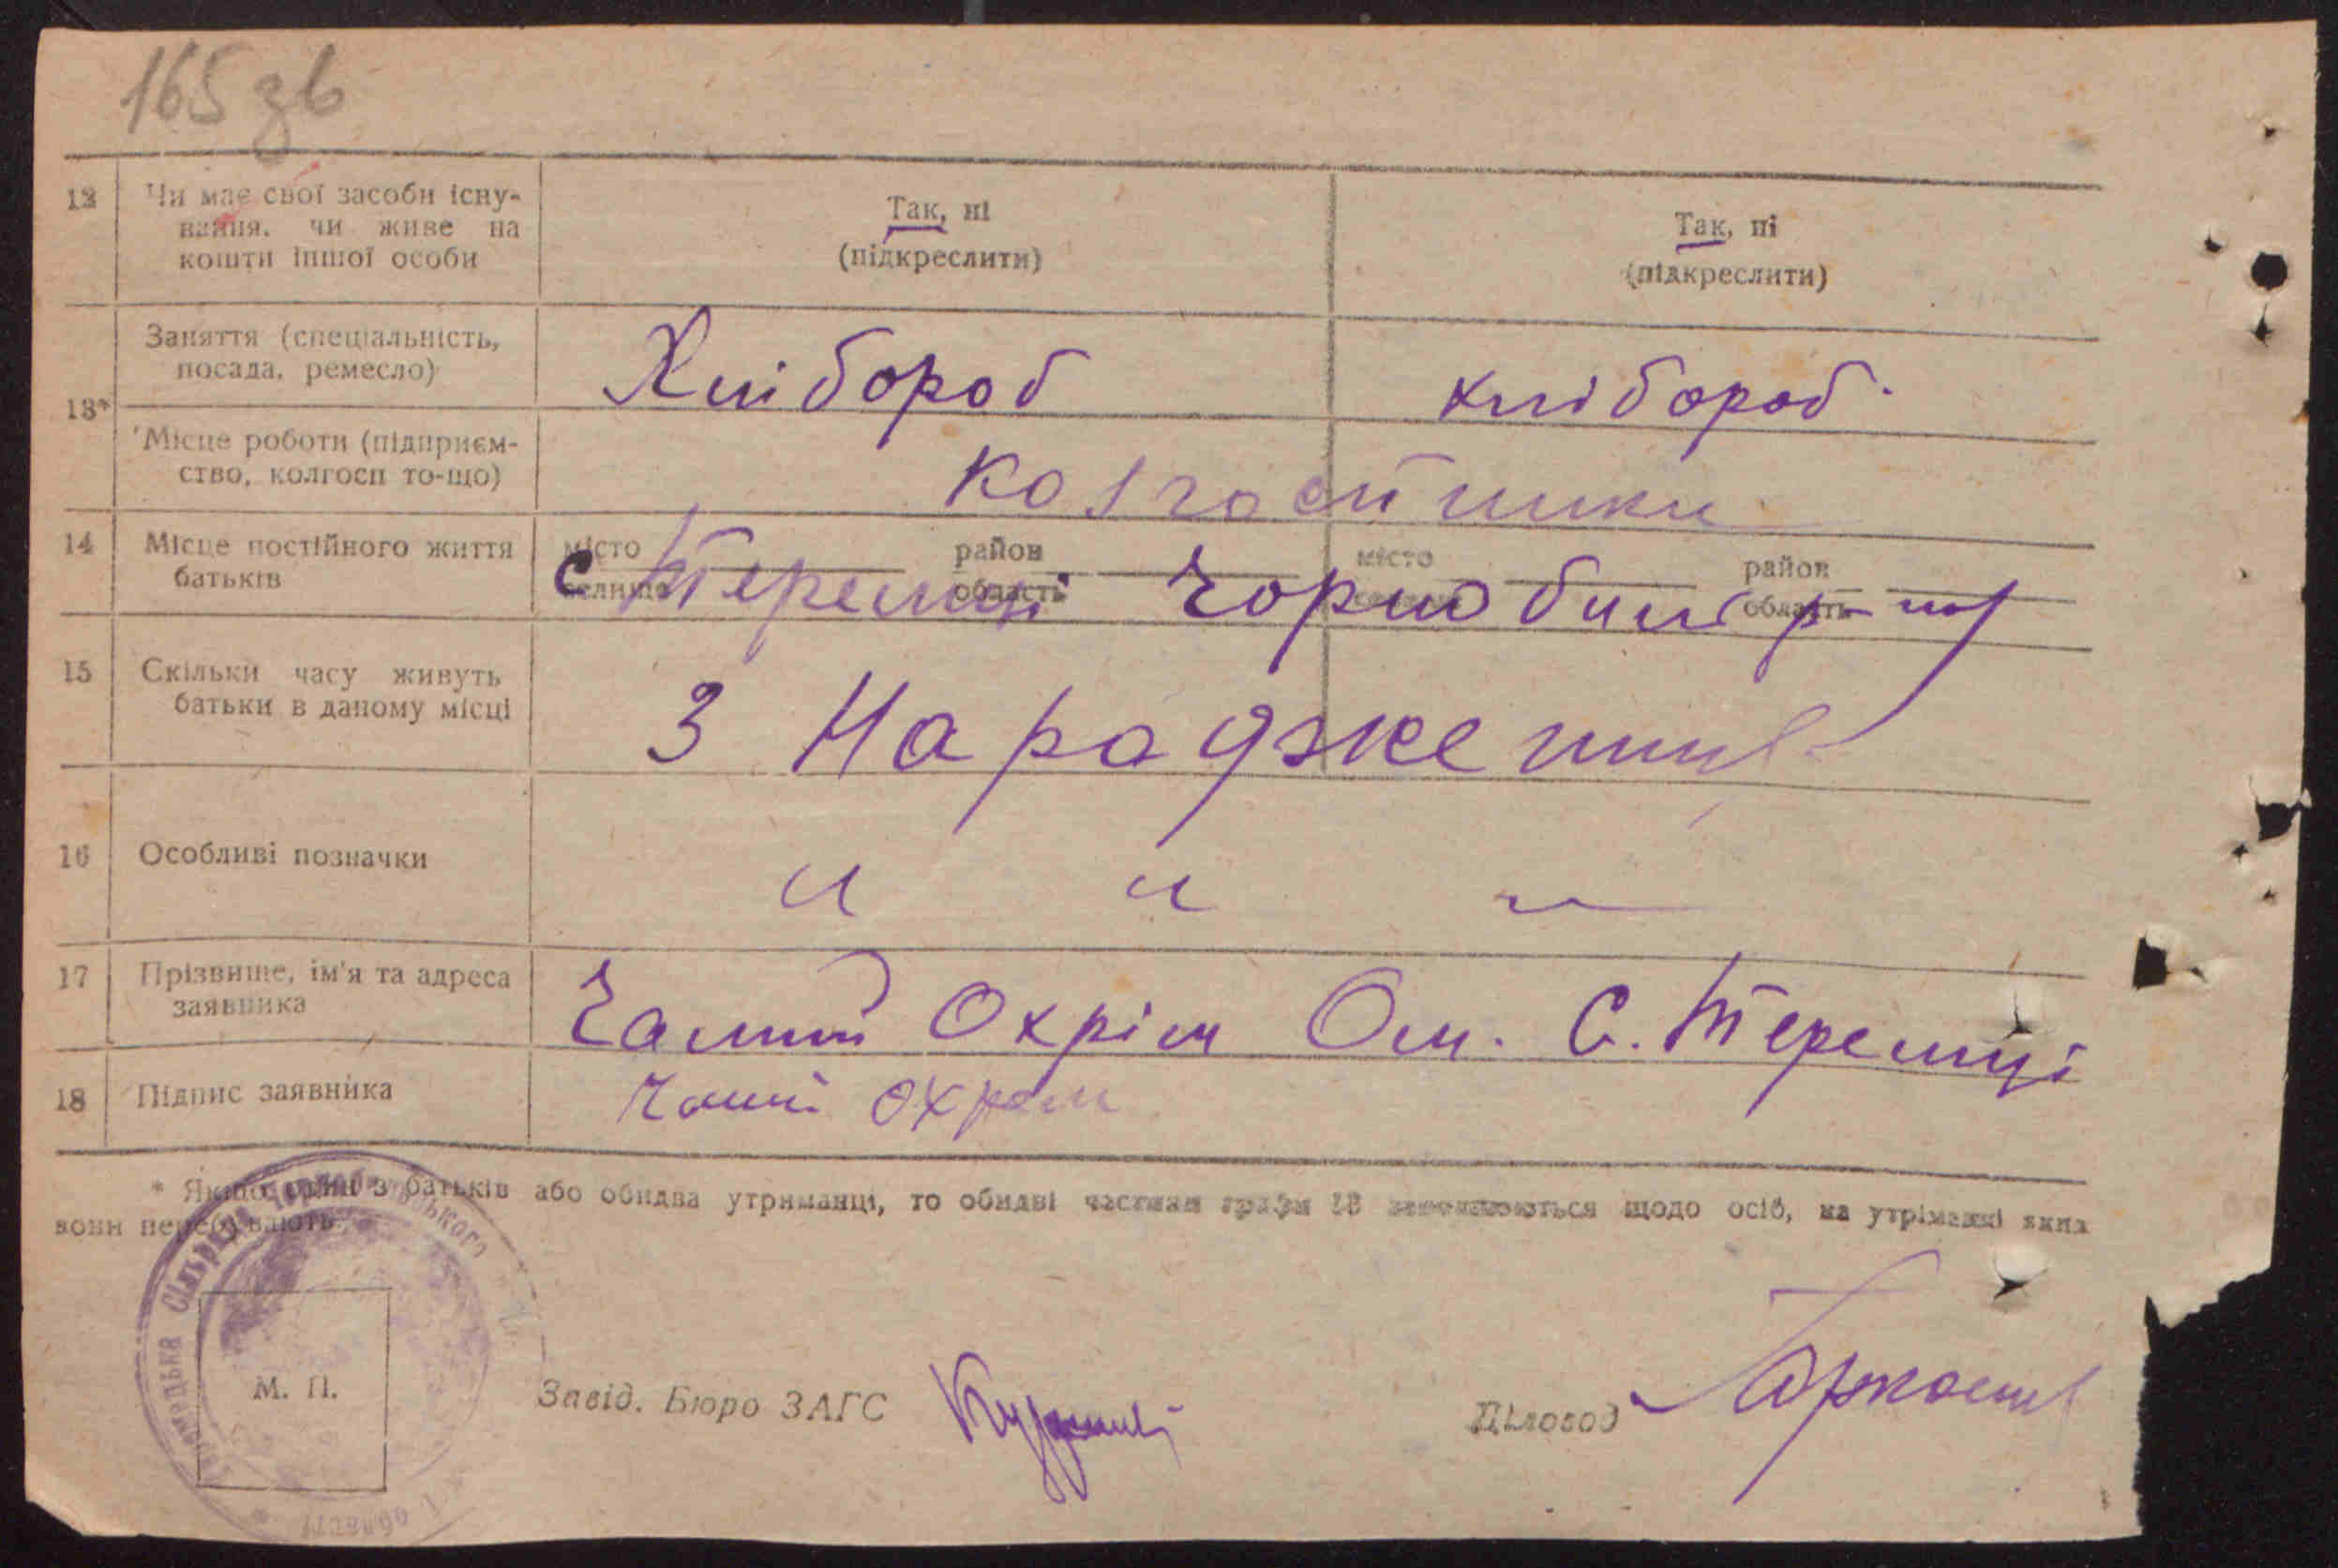 165 зв
12 Чи має свої засоби існу-
вання, чи живе на
кошти іншої особи
Так, ні
(підкреслити)
Так, ні
(підкреслити)
13*
Заняття (спеціальність,
посада, ремесло)
Хлібороб
хлібороб
Місце роботи (підприєм-
ство, колгосп то-що)
Колгостники
14 Місце постійного життя
батьків
місто район місто район
селище область область
с Теремці Чорнобил р-ну
15 Скільки часу живуть
батьки в даному місці
З Народження
16 Особливі позначки
17 Прізвище, ім'я та адреса
заявника
Охрім Ом. С. Теремці
18 Підпис заявника
* Якщо один з батьків або обидва утриманці, то обидві частини графи 13 заповнюються щодо осіб, на утріманні яких
вони перебувають.
Теремецька Сільрада Чорнобильського
області
М. П.
Завід. Бюро ЗАГС
Діловод